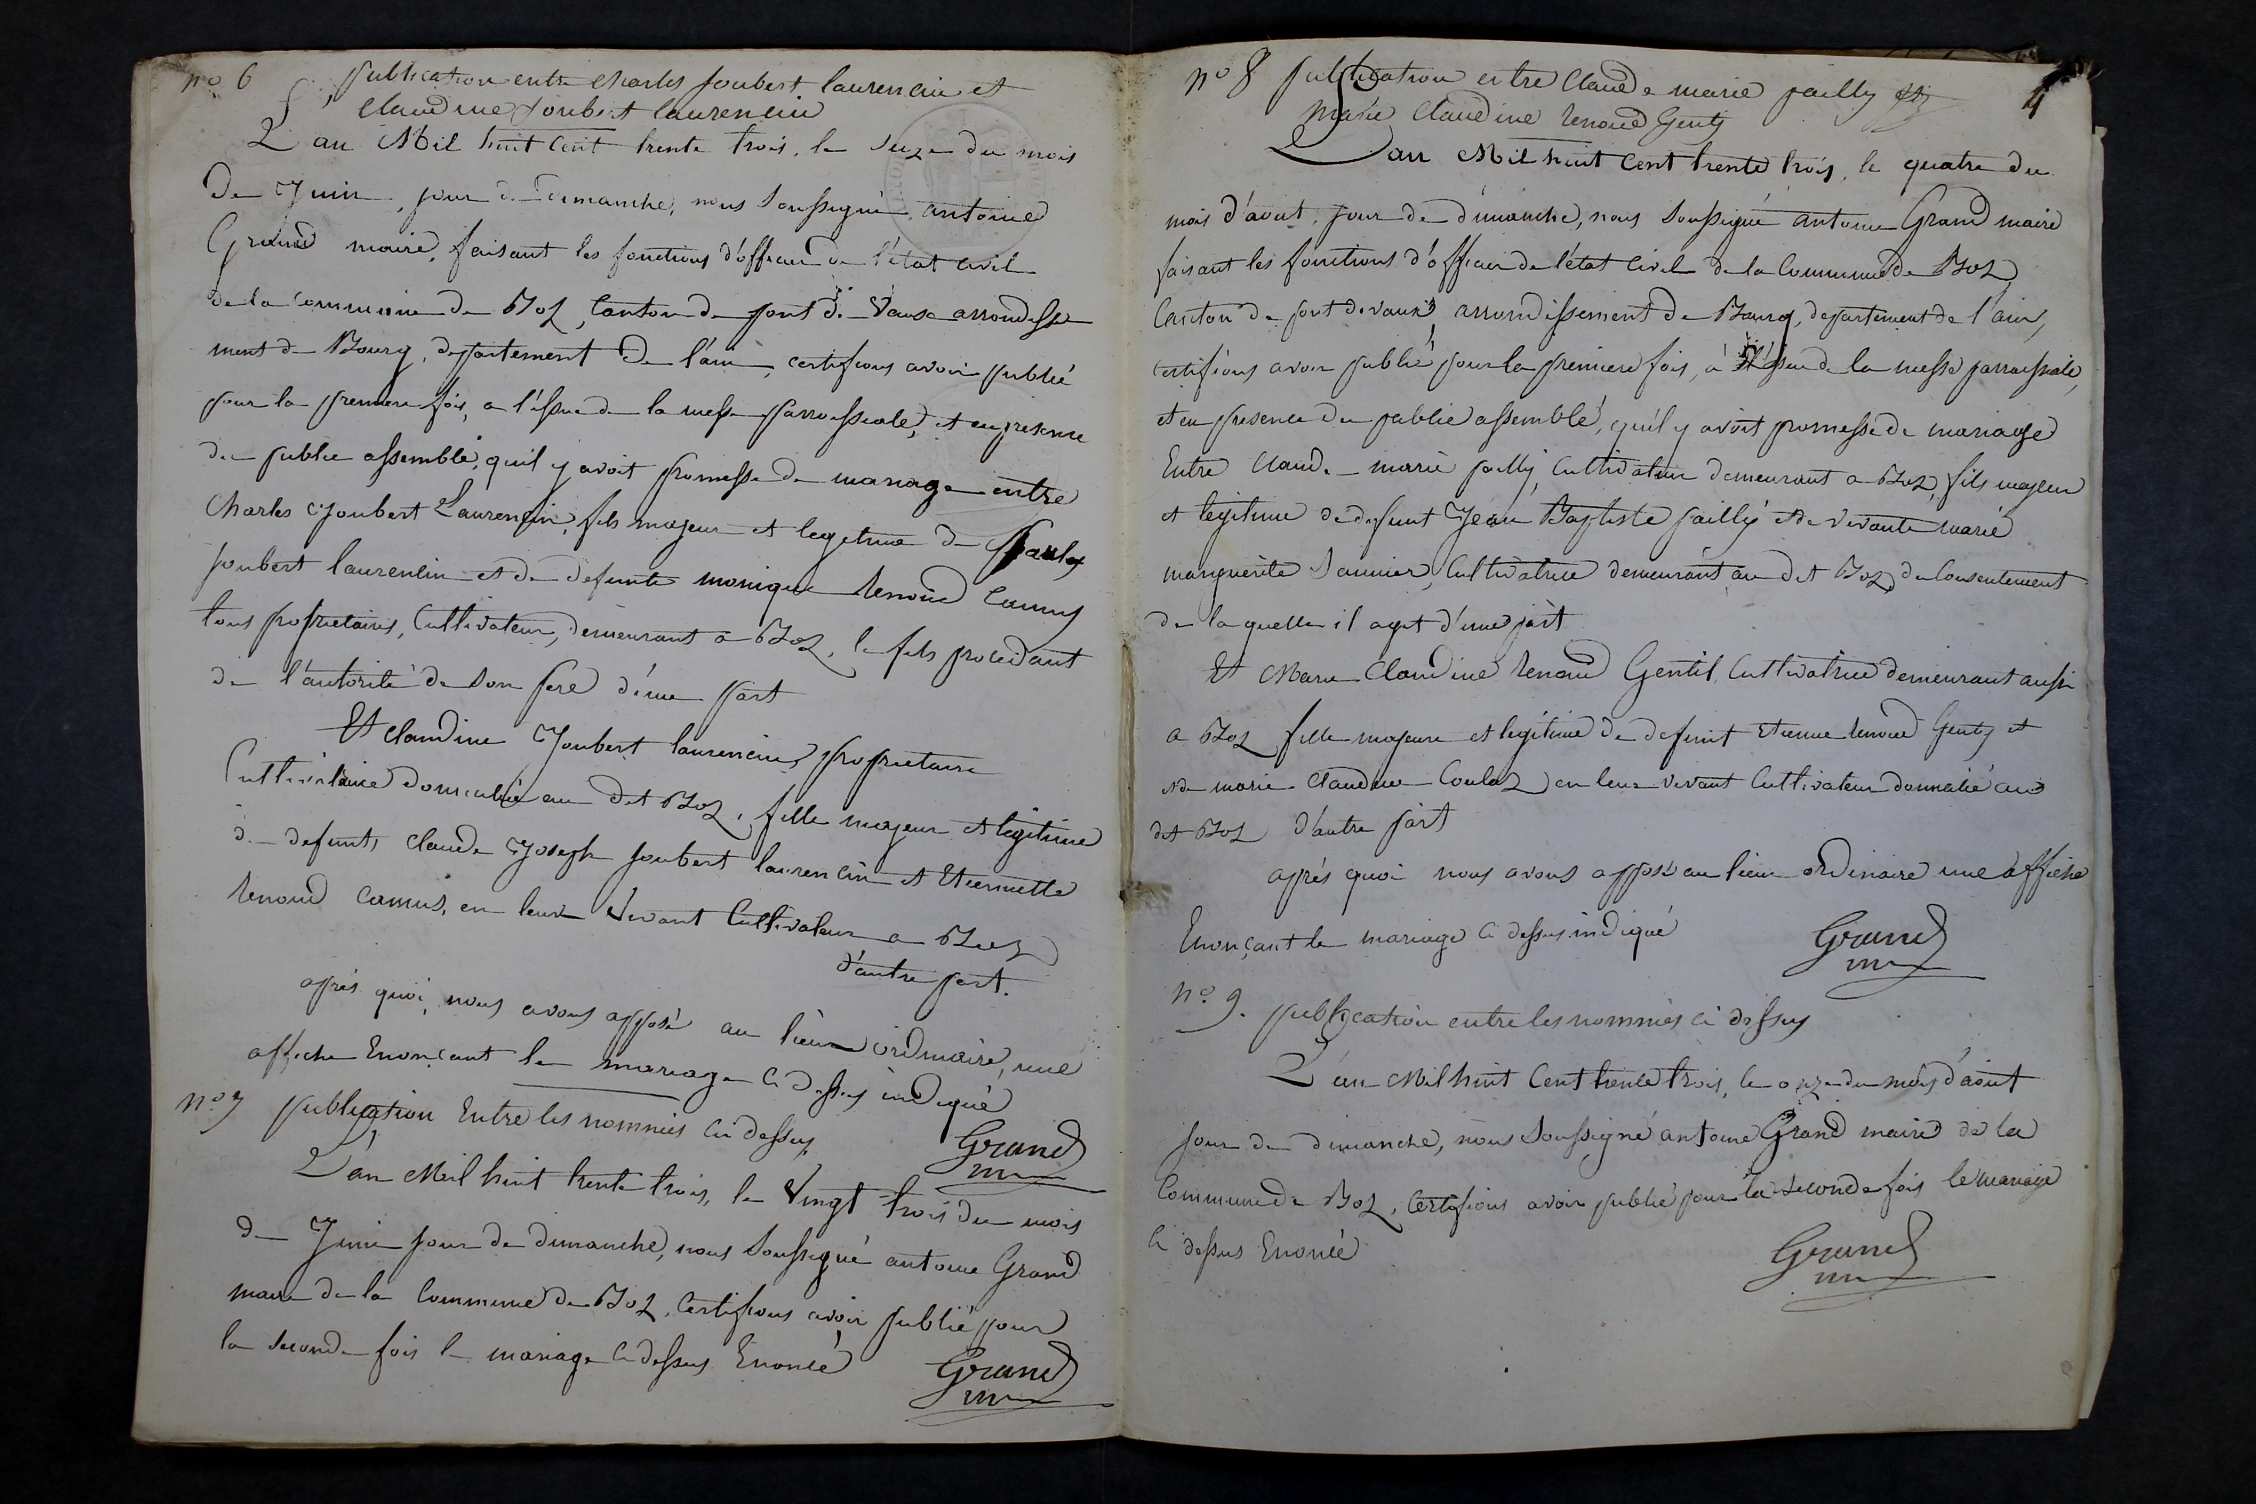 no 6 publication entre charles joubert laurencin et
claudine joubert laurencin
L'an Mil huit cent trente trois, le seize du mois
De Juin, jour de dimanche, nous soussigné antoine
Grand maire, faisant les fonctions d'officier de l'état civil
de la commune de Boz, Canton de pont de Vaux arrondisse
ment de Bourg, departement de l'ain, certifions avoir publié
pour la premiere fois, a l'issue de la messe parroissiale, et en presence
du public assemblé, quil y avoit promesse de mariage entre
Charles Joubert Laurencin, fils majeur et legitime de
joubert laurencin et de defunte monique Renoud Camus
tous proprietaires, Cultivateurs, demeurant a Boz, le fils procedant
de l'autorité de son pere d'une part
Et claudine Joubert laurencin, proprietaire
Cultivatrice domiciliée au dit Boz, fille majeur et legitime
de defunts claude Joseph joubert laurencin et Etiennette
Renoud camus, en leur Vivant Cultivateur a Boz
d'autre part.
aprés quoi, nous avons apposé au lieu ordinaire, une
affiche Enonçant le mariage ci dessus indiqué
Grand
no 7 publication Entre les nommées ci dessus
L'an Mil huit trente trois, le Vingt trois du mois
de Juin jour de dimanche, nous soussigné antoine Grand
maire de la Commune de Boz, Certifions avoir publié pour
la seconde fois le mariage ci dessus Enoncé
Grand
4
no 8 publication entre Claude marie pailly et
marie Claudine Renoud Genty
L'an Mil huit Cent trente trois, le quatre du
mois d'aout, jour de dimanche, nous soussigné antoine Grand maire
faisant les fonctions d'officier de l'état Civil de la Commune de Boz,
Canton de pont de vaux, arrondissement de Bourg, departement de l'ain,
certifions avoir publié pour la premiere fois, à l'issue de la messe parroissiale,
et en presence du public assemblé, quil y avoit promesse de mariage
Entre Claude marie pailly, Cultivateur demeurant a Boz, fils majeur
et legitime de defunt Jean Baptiste pailly et de vivante marie
marguerite Saunier, Cultivatrice demeurant au dit Boz, du Consentement
de la quelle il agit d'une part
Et Marie Claudine Renoud Gentil, Cultivatrice demeurant aussi
a Boz fille majeure et legitime de defunt Etienne Renoud Genty et
et de marie Claudine Coulas en leur vivant Cultivateur domicilié au
dit Boz d'autre part
aprés quoi nous avons apposé au lieu ordinaire une affiche
Enonçant le mariage ci dessus indiqué
Grand
no 9. publication entre les nommées ci dessus
L'an Mil huit Cent trente trois, le onze du mois d'aout
jour de dimanche, nous soussigné antoine Grand maire de la
Commune de Boz, Certifions avoir publié pour la seconde fois le mariage
ci dessus Enoncé
Grand